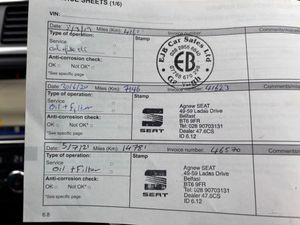 SHEETS (1/6)
VIN:
Date: Miles (Km): Comments/
Type of operation: Stamp
Service
EJB Car Sales Ltd
Anti-corrosion check:
OK Not OK*
*See specific page
Date: Miles (Km): 7146 Invoice number: 41623
Type of operation: Stamp Comments/
Service
Oil + Filter
Anti-corrosion check:
OK Not OK*
*See specific page
SEAT
Agnew SEAT
49-59 Ladas Drive
Belfast
BT6 9FR
Tel: 028 90703131
Dealer 47.6CS
ID 6.12
Date: 5/7/21 Miles (Km): 14781 Invoice number: 46570
Type of operation: Stamp Comments/
Service
Oil + Filter
Anti-corrosion check:
OK Not OK*
*See specific page
SEAT
Agnew SEAT
49-59 Ladas Drive
Belfast
BT6 9FR
Tel: 028 90703131
Dealer 47.6CS
ID 6.12
6.8